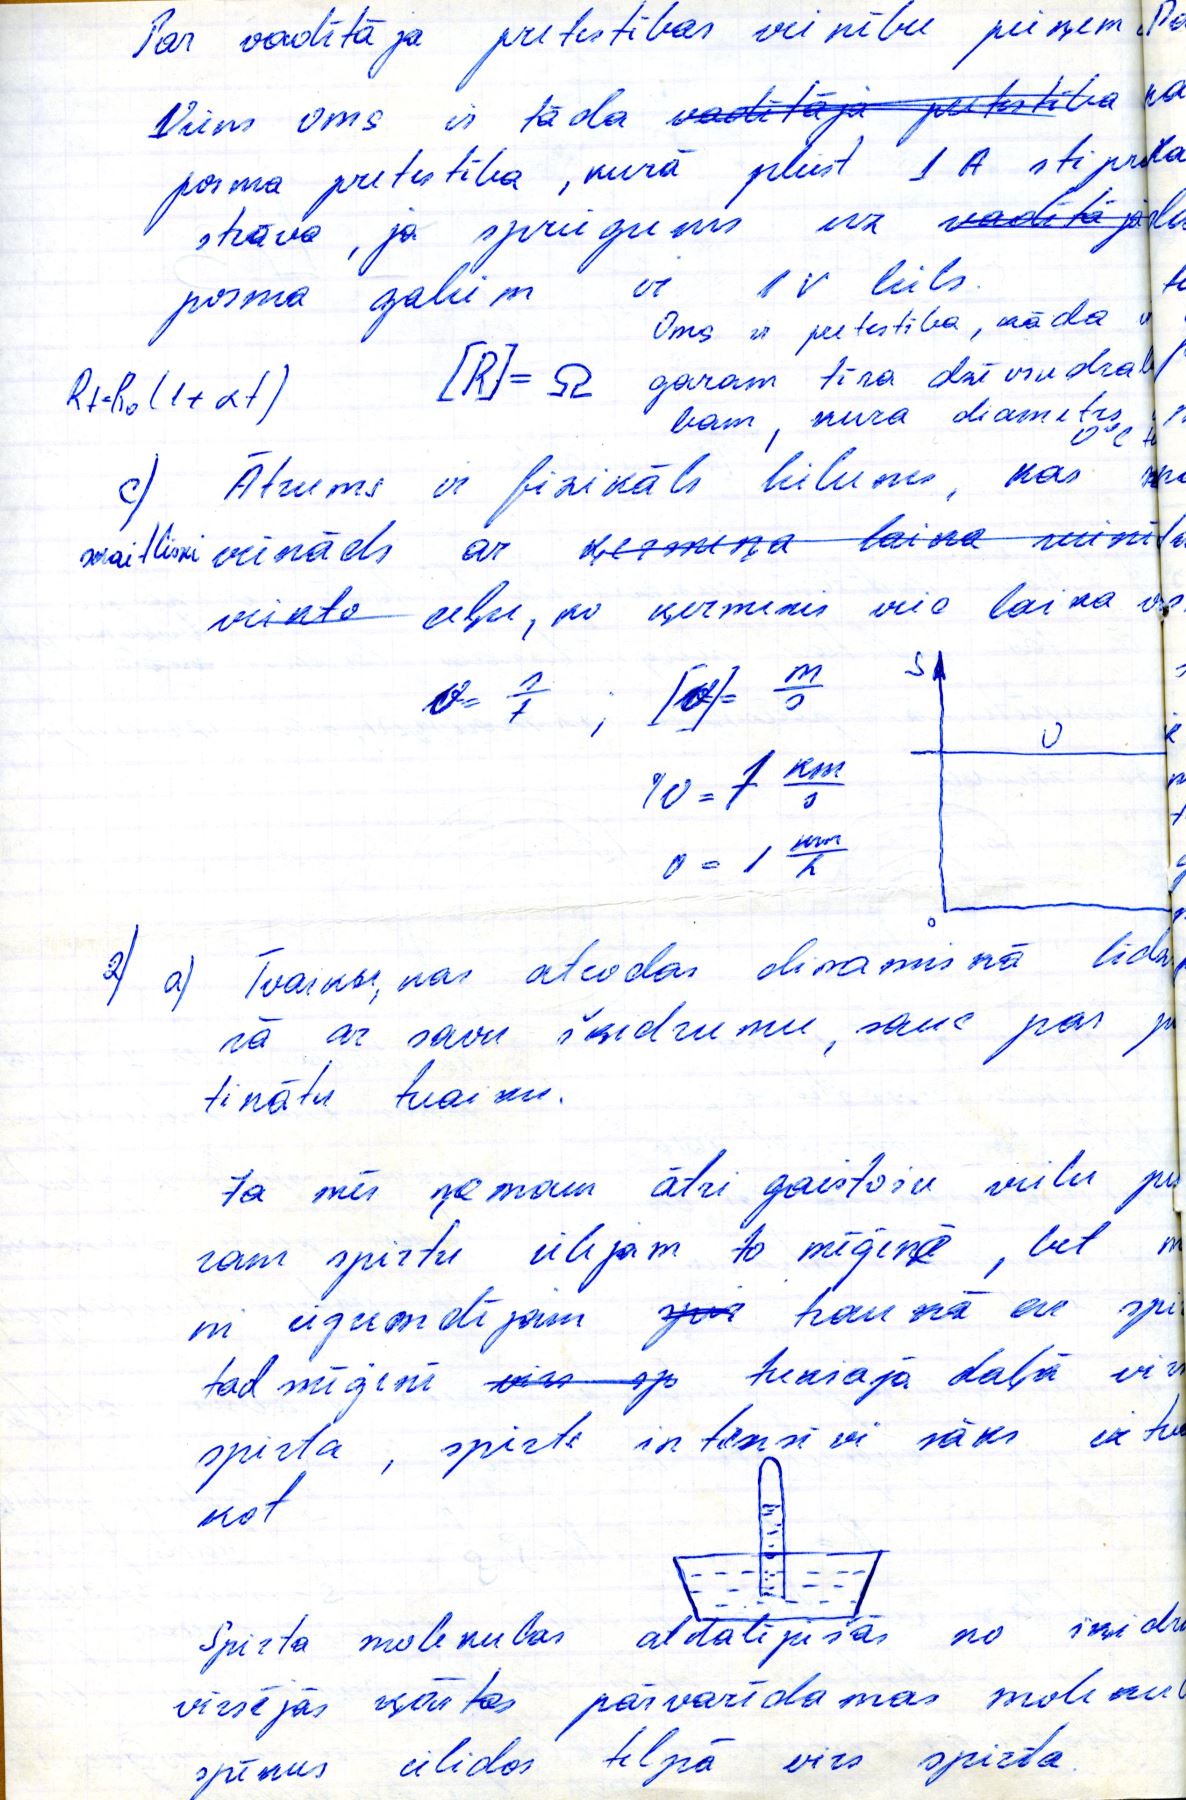 Par vadītāja pretestības vienību pieņem
Viens oms ir tāda vadītāja pretestība
posma pretestība, kurā plūst 1 A stipra
strāva, ja spriegums uz vadītāja
posma galiem ir 1 V liels.
Oms ir pretestība, kāda
Rt=R₀(1+αt) [R]= Ω garam tīra dzīvsudrab
bam, kura diametrs
0°C
c) Ātrums ir fizikāls lielums, kas
skaitliski vienāds ar ķermeņa laika vienī
veikto ceļu, ko ķermenis veic laika
v= s/t ; [v]= m/s
S
v
1v = 1 km/s
v = 1 km/h
0
2) a) Tvaiku, kas atrodas dinamiskā līdz
rā ar savu šķidrumu, sauc par
tinātu tvaiku.
Ja mēs ņemam ātri gaistošu vielu
ram spirtu ielejam to mēģenē, bet
ni iegremdējam spir traukā ar spi
tad mēģenē virs sp tuksajā daļā vir
spirta, spirts intensīvi sāks iztv
kot
Spirta molekulas atdalījušās no šķidr
virsējās kārtas pārvarēdamas molekul
spēkus ielidos telpā virs spirta.